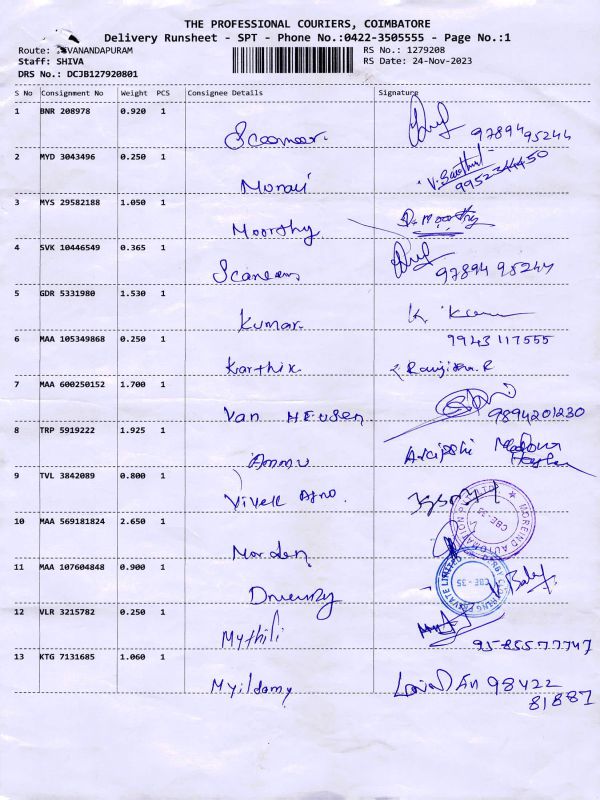 THE PROFESSIONAL COURIERS, COIMBATORE
Delivery Runsheet - SPT - Phone No.:0422-3505555 - Page No.:1
Route: VANANDAPURAM
RS No.: 1279208
Staff: SHIVA
RS Date: 24-Nov-2023
DRS No.: DCJB127920801
S No Consignment No Weight PCS Consignee Details Signature
1 BNR 208978 0.920 1
97894 95244
2 MYD 3043496 0.250 1
9952344450
3 MYS 29582188 1.050 1
Moorthy
4 SVK 10446549 0.365 1
97894 95244
5 GDR 5331980 1.530 1
Kumar K
6 MAA 105349868 0.250 1
9943 117555
Karthik
7 MAA 600250152 1.700 1
Van HEusen 9894201230
8 TRP 5919222 1.925 1
Ammu
9 TVL 3842089 0.800 1
Vivek Agro
10 MAA 569181824 2.650 1
MOREIND AUTOMATION PVT LTD
CBE-35
Morden
11 MAA 107604848 0.900 1
PRIVATE LIMITED
CBE-35
12 VLR 3215782 0.250 1
Mythili 9585577747
13 KTG 7131685 1.060 1
Myildamy 98422
81887